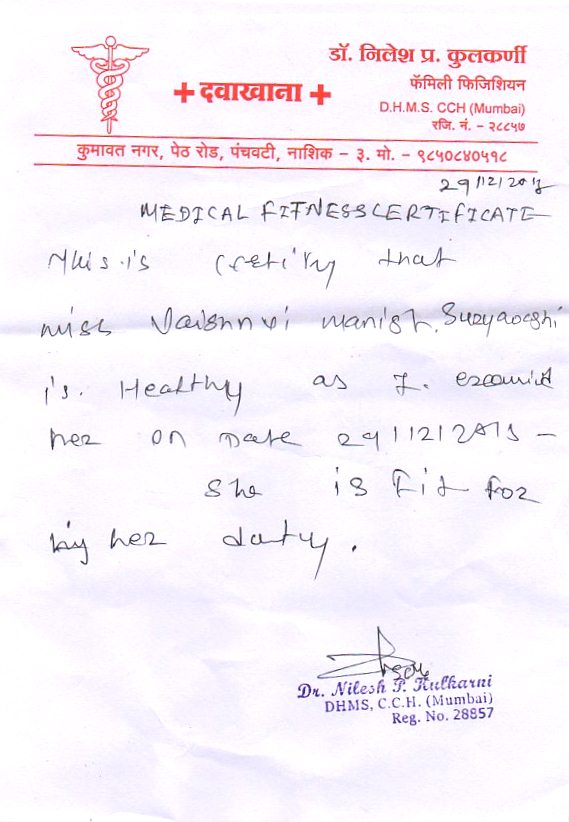 डॉ. निलेश प्र. कुलकर्णी
फॅमिली फिजिशियन
+ दवाखाना +
D.H.M.S. CCH (Mumbai)
रजि. नं. - २८८५७
कुमावत नगर, पेठ रोड, पंचवटी, नाशिक - ३. मो. - ९८५०८४०५१८
29/12/201
MEDICAL FITNESS CERTIFICATE
This is certify that
miss Vaishnvi Manish. Suryavashi
is. Healthy as I.
her on Date 29/12/201
she is Fit for
her duty.
Dr. Nilesh P. Kulkarni
DHMS, C.C.H. (Mumbai)
Reg. No. 28857